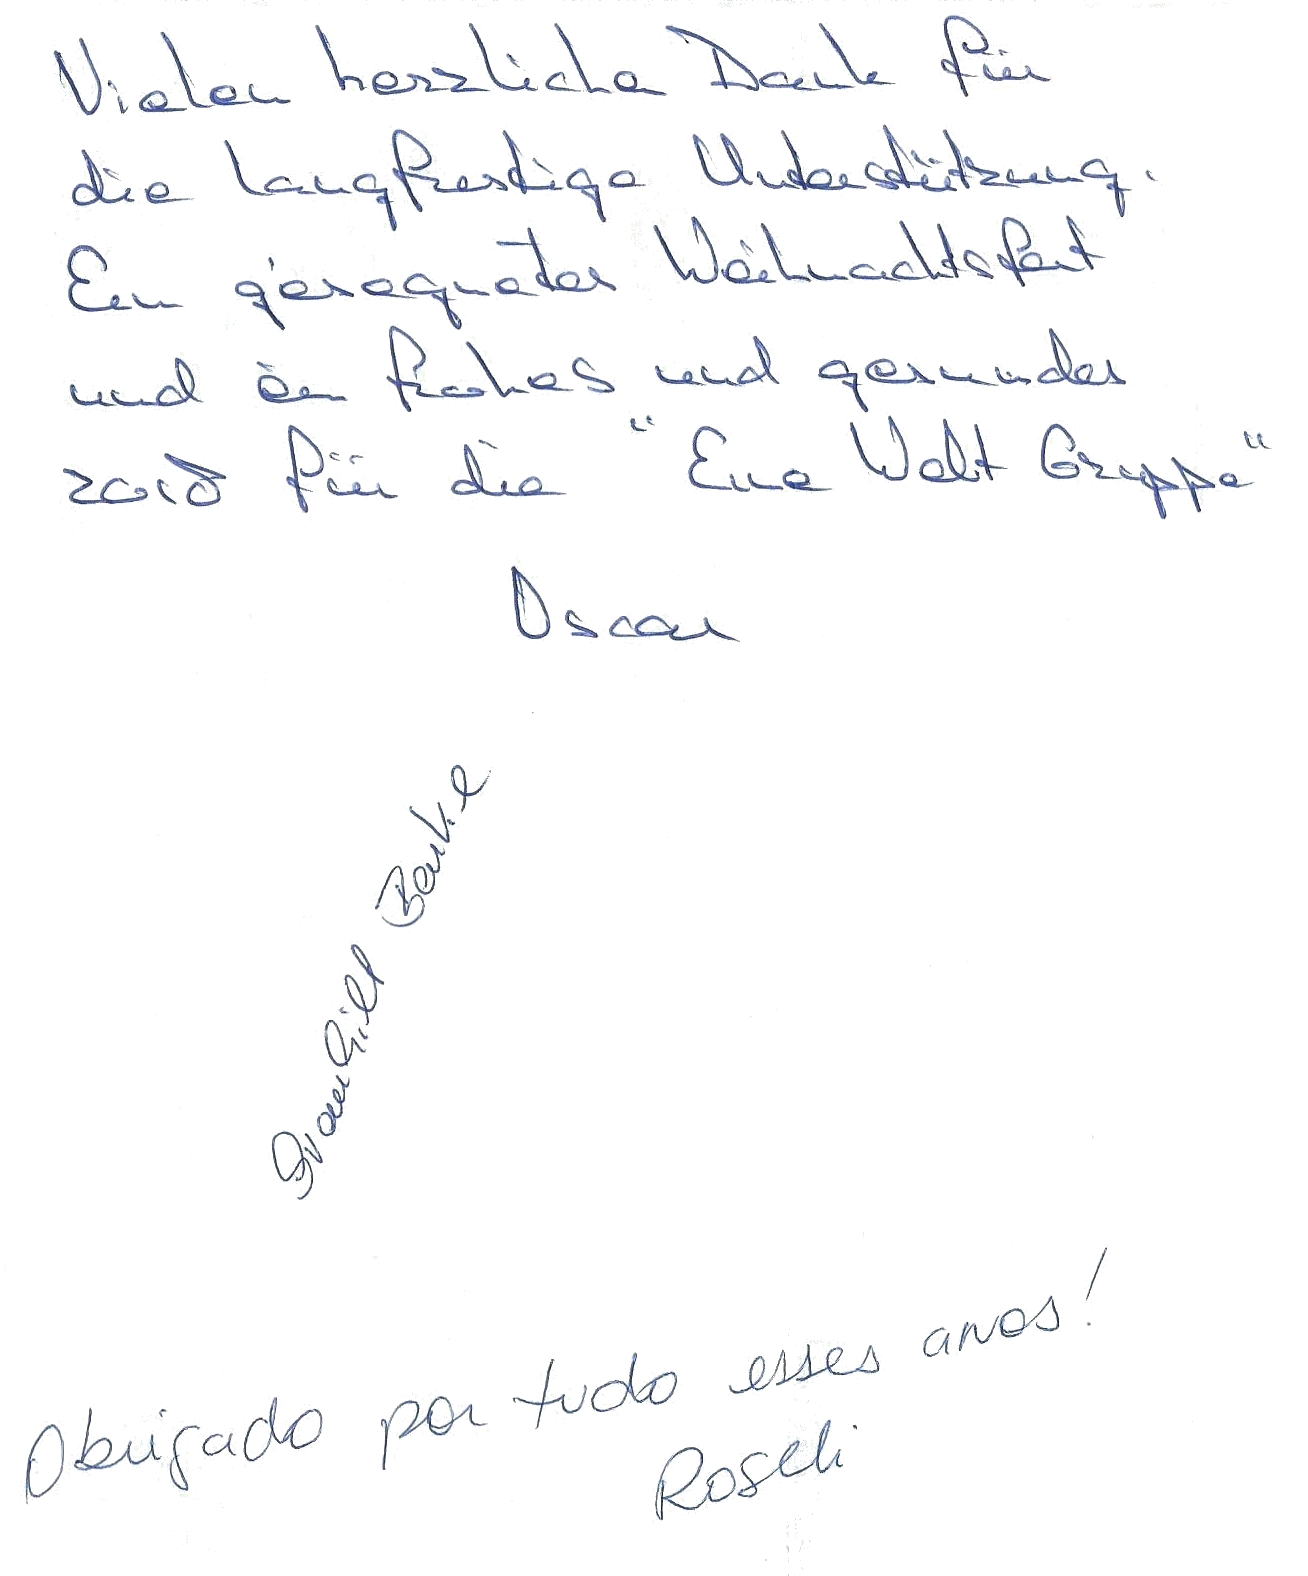 Vielen herzliche Dank für
die langfrestige Unterstützung.
Ein gesegnetes Weihnachtsfest
und ein frohes und gesundes
2018 für die "Eine Welt Gruppe"
Oscar
Obrigado por tudo esses anos!
Roseli